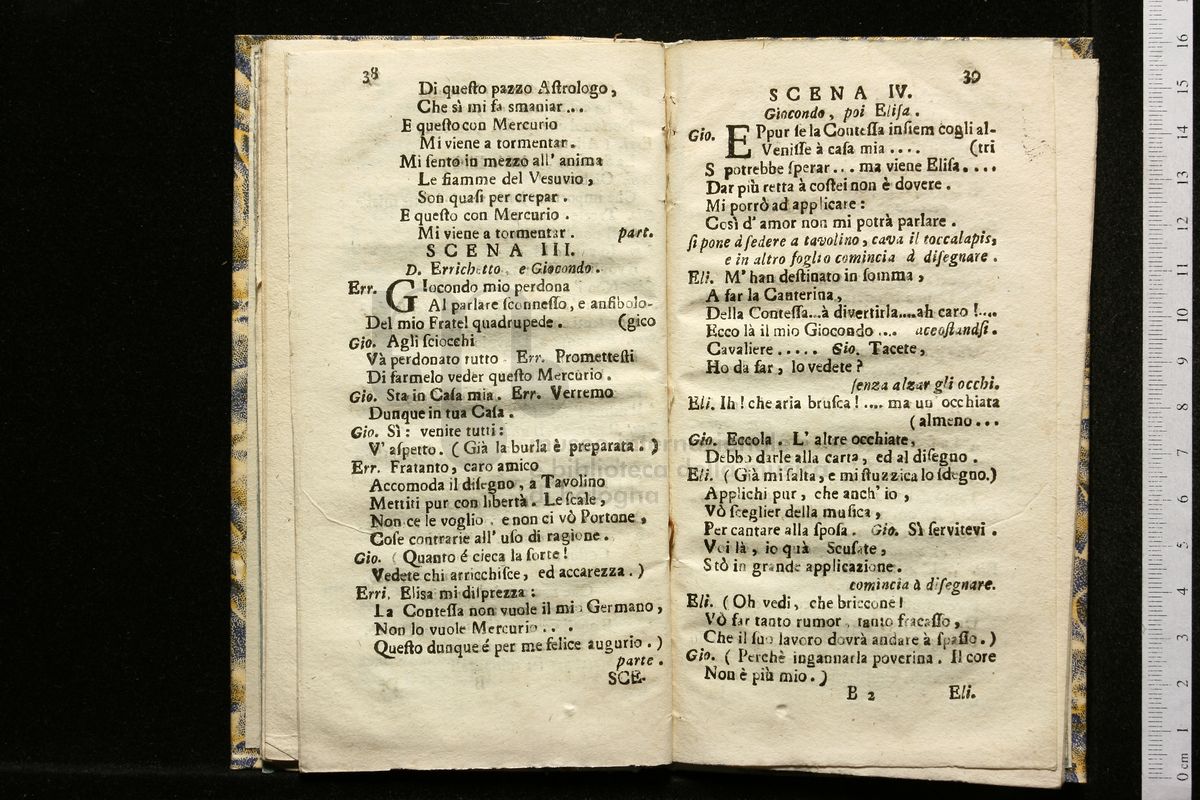 38
Di questo pazzo Astrologo,
Che sì mi fa smaniar...
E questo con Mercurio
Mi viene a tormentar.
Mi sento in mezzo all' anima
Le fiamme del Vesuvio,
Son quasi per crepar.
E questo con Mercurio.
Mi viene a tormentar. part.
SCENA III.
D. Errichetto, e Giocondo.
Err. GIocondo mio perdona
Al parlare sconnesso, e anfibolo-
Del mio Fratel quadrupede. (gico
Gio. Agli sciocchi
Và perdonato tutto. Err. Promettesti
Di farmelo veder questo Mercurio.
Gio. Sta in Casa mia. Err. Verremo
Dunque in tua Casa.
Gio. Sì: venite tutti:
V' aspetto. (Già la burla è preparata.)
Err. Fratanto, caro amico
Accomoda il disegno, a Tavolino
Mettiti pur con libertà. Le scale,
Non ce le voglio, e non ci vò Portone,
Cose contrarie all' uso di ragione.
Gio. (Quanto é cieca la sorte!
Vedete chi arricchisce, ed accarezza.)
Erri. Elisa mi disprezza:
La Contessa non vuole il mio Germano,
Non lo vuole Mercurio...
Questo dunque é per me felice augurio.)
parte.
SCE-
39
SCENA IV.
Giocondo, poi Elisa.
Gio. EPpur se la Contessa insiem cogli al-
Venisse à casa mia.... (tri
S potrebbe sperar... ma viene Elisa....
Dar più retta à costei non è dovere.
Mi porrò ad applicare:
Così d' amor non mi potrà parlare.
si pone à sedere a tavolino, cava il toccalapis,
e in altro foglio comincia à disegnare.
Eli. M' han destinato in somma,
A far la Canterina,
Della Contessa...à divertirla....ah caro!....
Ecco là il mio Giocondo.... accostandsi.
Cavaliere..... Gio. Tacete,
Ho da far, lo vedete?
senza alzar gli occhi.
Eli. Ih! che aria brusca!.... ma un' occhiata
(almeno...
Gio. Eccola. L' altre occhiate,
Debbo darle alla carta, ed al disegno.
Eli. (Già mi salta, e mi stuzzica lo sdegno.)
Applichi pur, che anch' io,
Vò sceglier della musica,
Per cantare alla sposa. Gio. Sì servitevi.
Voi là, io quà Scusate,
Stò in grande applicazione.
comincia à disegnare.
Eli. (Oh vedi, che briccone!
Vò far tanto rumor, tanto fracasso,
Che il suo lavoro dovrà andare à spasso.)
Gio. (Perchè ingannarla poverina. Il core
Non è più mio.)
B 2 Eli.